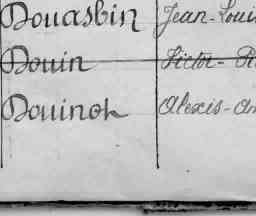 Douasbin Jean-Louis
Douin Victor-
Douinot Alexis-